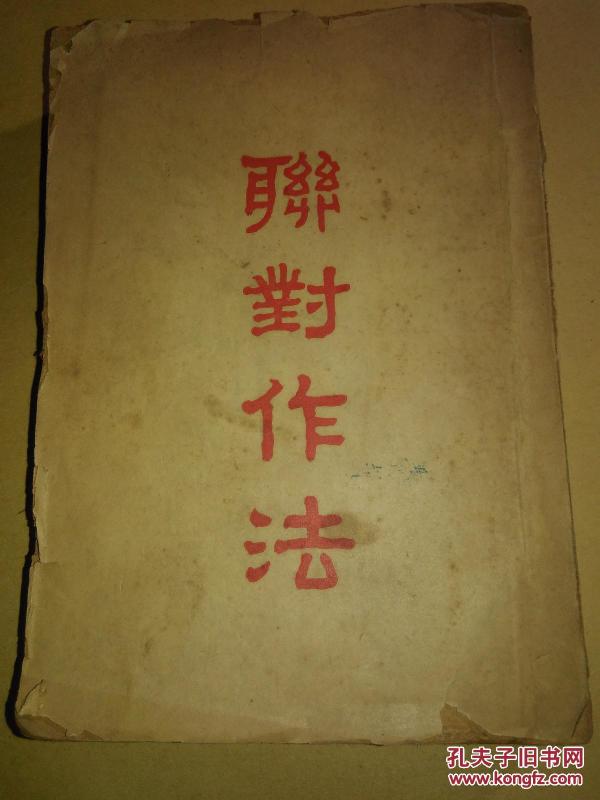 聯對作法
孔夫子旧书网
www.kongfz.com